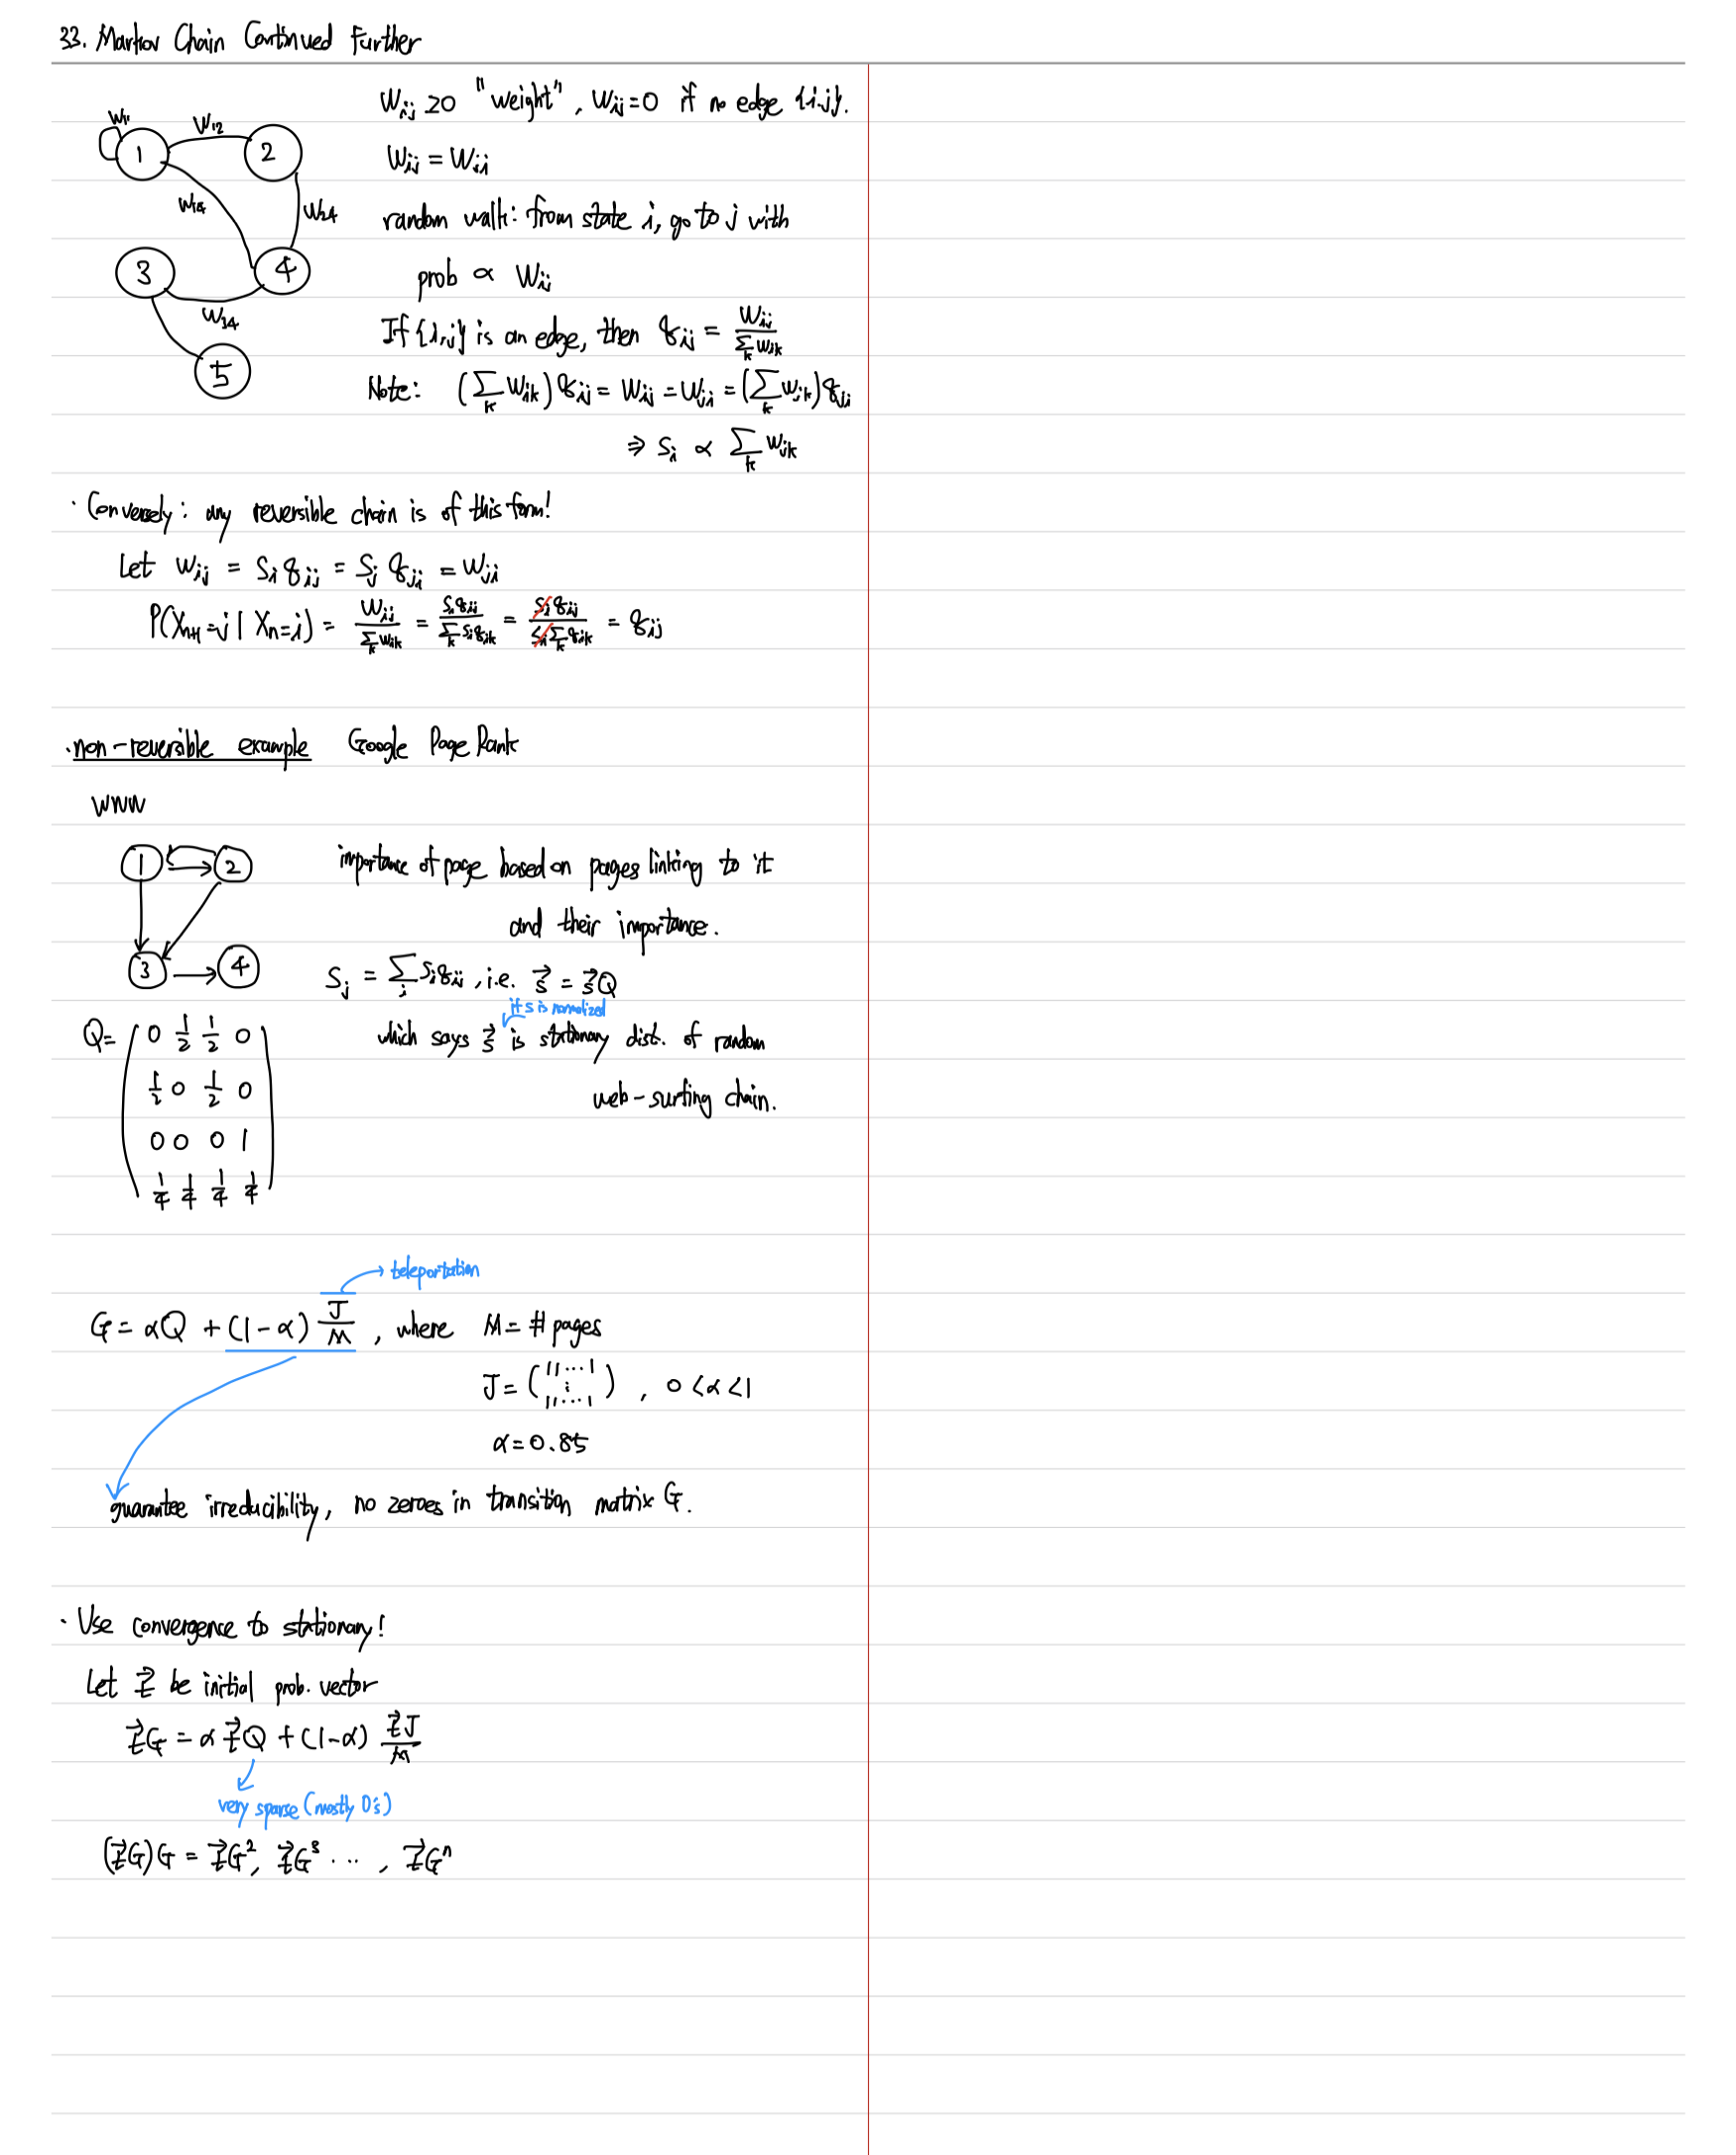 33. Markov Chain Continued Further
W₁₁
W₁₂
1
2
W₁₄
W₂₄
3
4
W₃₄
5
Wᵢⱼ ≥0 "weight", Wᵢⱼ=0 if no edge {i,j}.
Wᵢⱼ = Wⱼᵢ
random walk: from state i, go to j with
prob ∝ Wᵢⱼ
If {i,j} is an edge, then qᵢⱼ = Wᵢⱼ / Σₖ Wᵢₖ
Note: (Σₖ Wᵢₖ) qᵢⱼ = Wᵢⱼ = Wⱼᵢ = (Σₖ Wⱼₖ) qⱼᵢ
⇒ Sᵢ ∝ Σₖ Wᵢₖ
· Conversely: any reversible chain is of this form!
Let Wᵢⱼ = Sᵢ qᵢⱼ = Sⱼ qⱼᵢ = Wⱼᵢ
P(Xₙ₊₁=j | Xₙ=i) = Wᵢⱼ / Σₖ Wᵢₖ = Sᵢqᵢⱼ / Σₖ Sᵢqᵢₖ = Sᵢqᵢⱼ / SᵢΣₖ qᵢₖ = qᵢⱼ
· non-reversible example Google PageRank
WWW
1
2
3
4
importance of page based on pages linking to it
and their importance.
Sⱼ = Σᵢ Sᵢqᵢⱼ, i.e. s⃗ = s⃗Q
if s is normalized
which says s⃗ is stationary dist. of random
web-surfing chain.
Q= ( 0 1/2 1/2 0
1/2 0 1/2 0
0 0 0 1
1/4 1/4 1/4 1/4 )
teleportation
G = αQ + (1-α) J/M, where M = # pages
J = (11...1 ⋮ 11...1), 0<α<1
α=0.85
guarantee irreducibility, no zeroes in transition matrix G.
· Use convergence to stationary!
Let t⃗ be initial prob. vector
t⃗G = α t⃗Q + (1-α) t⃗J/M
very sparse (mostly 0's)
(t⃗G)G = t⃗G², t⃗G³ ..., t⃗Gⁿ